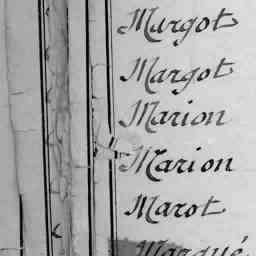 Murgot
Margot
Marion
Marion
Marot
Marqué